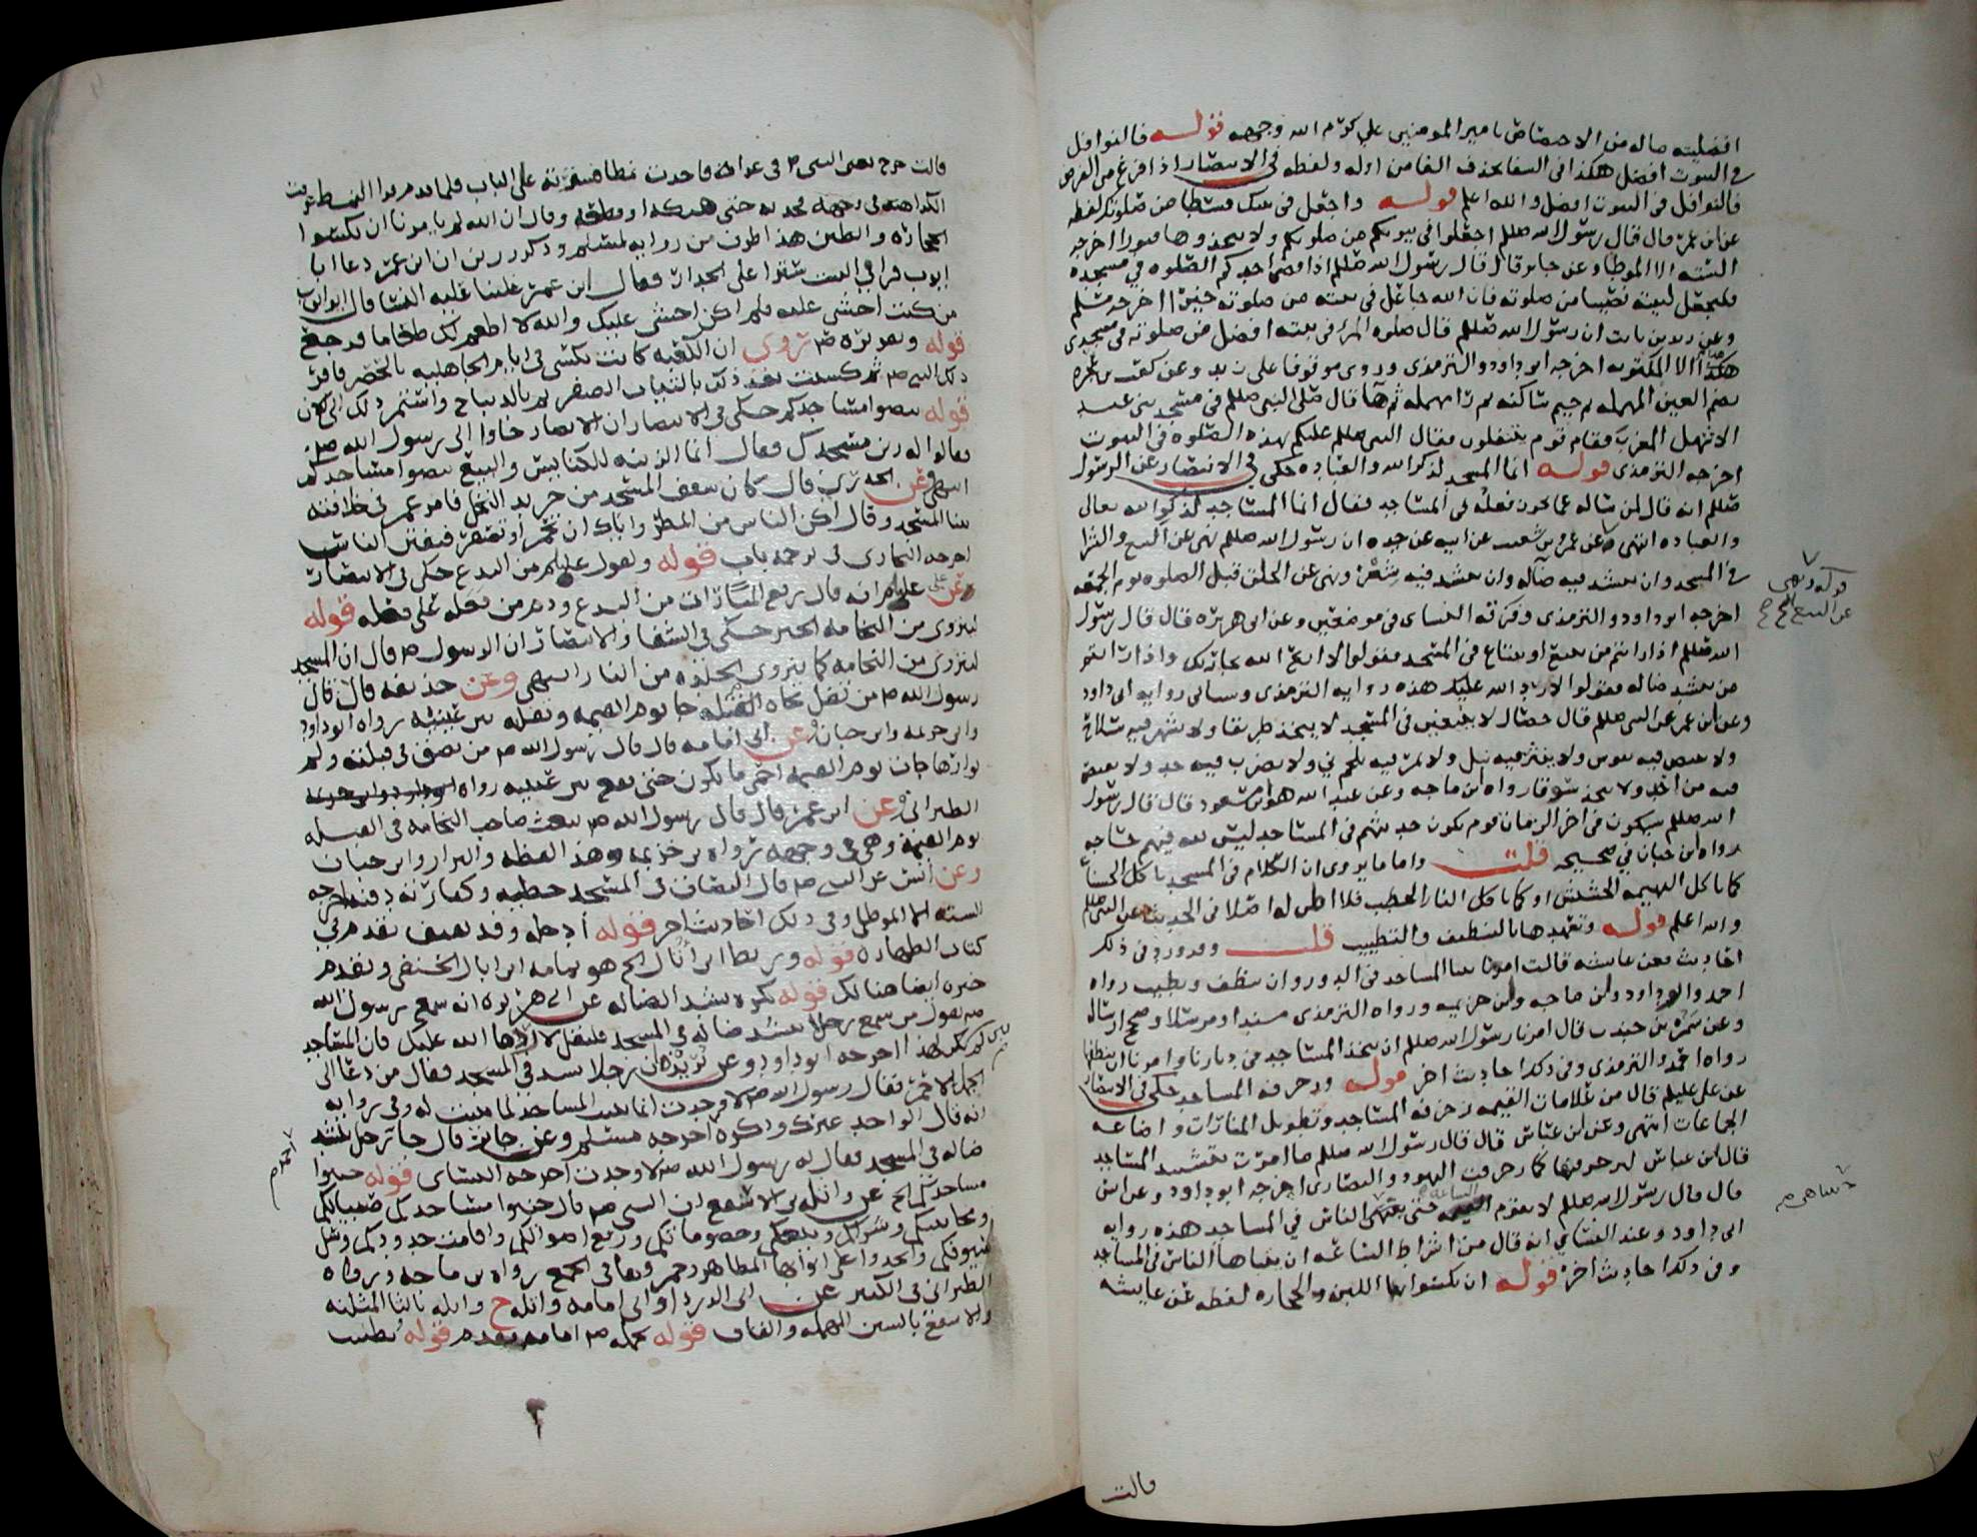 افضليته ماله من الاختصاص بامير المومنين علي كرم الله وجهه قوله فالنوافل
في البيوت افضل هكذا في الشفا بحذف الفا من اوله ولفظه في الانتصار اذا فرغ من الفرض
فالنوافل في البيوت افضل والله اعلم قوله واجعل في بيتك قسطا من صلوتك لفظه
عن ابن عمر قال قال رسول الله صللم اجعلوا في بيوتكم من صلوتكم ولا تتخذوها قبورا اخرجه
الستة الا الموطا وعن جابر قال قال رسول الله صللم اذا قضى احدكم الصلوه في مسجده
فليجعل لبيته نصيبا من صلوته فان الله جاعل في بيته من صلوته خيرا اخرجه مسلم
وعن زيد بن ثابت ان رسول الله صللم قال صلوه المرء في بيته افضل من صلوته في مسجدي
هذا الا المكتوبه اخرجه ابو داود والترمذي وروي موقوفا على زيد وعن كعب بن عجره
بضم العين المهمله ثم جيم ساكنه ثم را مهمله ثم ها قال صلى النبي صللم في مسجد بني عبد
الاشهل المغرب فقام قوم يتنفلون فقال النبي صللم عليكم بهذه الصلوه في البيوت
اخرجه الترمذي قوله انما المسجد لذكر الله والعباده حكى في الانتصار عن الرسول
صللم انه قال لمن ساله عما يجوز فعله في المساجد فقال انما المساجد لذكر الله تعالى
والعباده انتهى وعن عمرو بن شعيب عن ابيه عن جده ان رسول الله صللم نهى عن البيع والشرا
في المسجد وان ينشد فيه ضاله وان ينشد فيه شعر ونهى عن الحلق قبل الصلوه يوم الجمعه
اخرجه ابو داود والترمذي وفرقه النساي في موضعين وعن ابي هريره قال قال رسول
الله صللم اذا رايتم من يبيع او يبتاع في المسجد فقولوا لا اربح الله تجارتك واذا رايتم
من ينشد ضاله فقولوا لا رد الله عليك هذه روايه الترمذي وسياتي روايه ابي داود
وعن ابن عمر عن النبي صللم قال خصال لا ينبغين في المسجد لا يتخذ طريقا ولا يشهر فيه سلاح
ولا ينبض فيه بقوس ولا ينثر فيه نبل ولا يمر فيه بلحم ني ولا يضرب فيه حد ولا يقتص
فيه من احد ولا يتخذ سوقا رواه ابن ماجه وعن عبد الله هو ابن مسعود قال قال رسول
الله صللم سيكون في اخر الزمان قوم يكون حديثهم في المساجد ليس لله فيهم حاجه
رواه ابن حبان في صحيحه قلت واما ما يروى ان الكلام في المسجد ياكل الحسنات
كما تاكل البهيمه الحشيش او كما تاكل النار الحطب فلا اظن له اصلا في الحديث عن النبي صللم
والله اعلم قوله وتعهدها بالتنظيف والتطييب قلت وقد ورد في ذلك
احاديث فعن عايشه قالت امرنا ببنا المساجد في الدور وان تنظف وتطيب رواه
احمد وابو داود وابن ماجه وابن خزيمه ورواه الترمذي مسندا ومرسلا وصحح ارساله
وعن سمره بن جندب قال امرنا رسول الله صللم ان نتخذ المساجد في ديارنا وامرنا ان ننظفها
رواه احمد والترمذي وفي ذلك احاديث اخر قوله وزخرفه المساجد حكى في الانتصار
عن علي عليلم قال من علامات القيمه زخرفه المساجد وتطويل المنارات واضاعه
الجماعات انتهى وعن ابن عباس قال قال رسول الله صللم ما امرت بتشييد المساجد
قال ابن عباس لتزخرفنها كما زخرفت اليهود والنصارى اخرجه ابو داود وعن انس
قال قال رسول الله صللم لا تقوم الساعة حتى يتباهى الناس في المساجد هذه روايه
ابي داود وعند النساي انه قال من اشراط الساعه ان يتباها الناس في المساجد
وفي ذلك احاديث اخر قوله ان نكسوا اللبن والحجاره لفظه عن عايشه
قوله ونهى
عن البيع الخ
قالت
قالت خرج يعني النبي في غزاته فاخذت نمطا فسترته على الباب فلما قدم فراى النمط عرفت
الكراهه في وجهه فجذبه حتى هتكه او قطعه وقال ان الله لم يامرنا ان نكسوا
الحجاره والطين هذا طرف من روايه لمسلم وذكر رزين ان ابن عمر دعا ابا
ايوب فراى في البيت سترا على الجدار فقال ابن عمر غلبنا عليه النسا قال ابو ايوب
من كنت اخشى عليه فلم اكن اخشى عليك والله لا اطعم لك طعاما فرجع
قوله وتقريره تروى ان الكعبه كانت تكسى في ايام الجاهليه بالخضر فاقر
ذلك النبي ثم كسيت بعد ذلك بالثياب الصفر ثم بالديباج واستمر ذلك الى الان
قوله بيضوا مساجدكم حكى في الانتصار ان الانصار جاوا الى رسول الله
فقالوا له زين مسجدك فقال انما الزينه للكنايس والبيع بيضوا مساجدكم
انتهى وعن الخدري قال كان سقف المسجد من جريد النخل فامر عمر في خلافته
ببنا المسجد وقال اكن الناس من المطر واياك ان تحمر او تصفر فتفتن الناس
اخرجه البخاري في ترجمه باب قوله ولقول عليلم من البدع حكى في الانتصار
عن علي عليلم انه قال رفع المنارات من البدع وهو من نقله على فعله قوله
لينزوى من النخامه الخبر حكى في الشفا والانتصار ان الرسول قال ان المسجد
لينزوى من النخامه كما ينزوى الجلده من النار انتهى وعن حذيفه قال قال
رسول الله من تفل تجاه القبله جا يوم القيمه وتفله بين عينيه رواه ابو داود
وابن خزيمه وابن حبان وعن ابي امامه قال قال رسول الله من بصق في قبلته ولم
يوارها جات يوم القيمه احمى ما يكون حتى تقع بين عينيه رواه
الطبراني وعن ابن عمر قال قال رسول الله يبعث صاحب النخامه في القبله
يوم القيمه وهي في وجهه رواه بن خزيمه وهذا لفظه والبزار وابن حبان
وعن انس عن النبي قال البصاق في المسجد خطيه وكفارته دفنه اخرجه
الستة الا الموطا وفي ذلك احاديث اخر قوله ادخله وفد ثقيف تقدم في
كتاب الطهاره قوله وربط ابن اثال الخ هو ثمامه ابن اثال الحنفي وتقدم
خبره ايضا هنالك قوله تكره نشد الضاله عن ابي هريره انه سمع رسول الله
يقول من سمع رجلا ينشد ضاله في المسجد فليقل لا ردها الله عليك فان المساجد
لم تبن لهذا اخرجه ابو داود وعن بريده ان رجلا نشد في المسجد فقال من دعا الى
الجمل الاحمر فقال رسول الله لا وجدت انما بنيت المساجد لما بنيت له وفي روايه
انه قال الواحد غيرك وذكره اخرجه مسلم وعن جابر قال جا رجل ينشد
ضاله في المسجد فقال له رسول الله لا وجدت اخرجه النساي قوله جنبوا
مساجدكم الخ عن واثله بن الاسقع ان النبي قال جنبوا مساجدكم صبيانكم
ومجانينكم وشراكم وبيعكم وخصوماتكم ورفع اصواتكم واقامه حدودكم وسل
سيوفكم واتخذوا على ابوابها المطاهر وجمروها في الجمع رواه بن ماجه ورواه
الطبراني في الكبير عن ابي الدردا وابي امامه وواثله وواثله بالثا المثلثه
والاسقع بالسين المهمله والقاف قوله بحمله امامه تقدم قوله بطنب